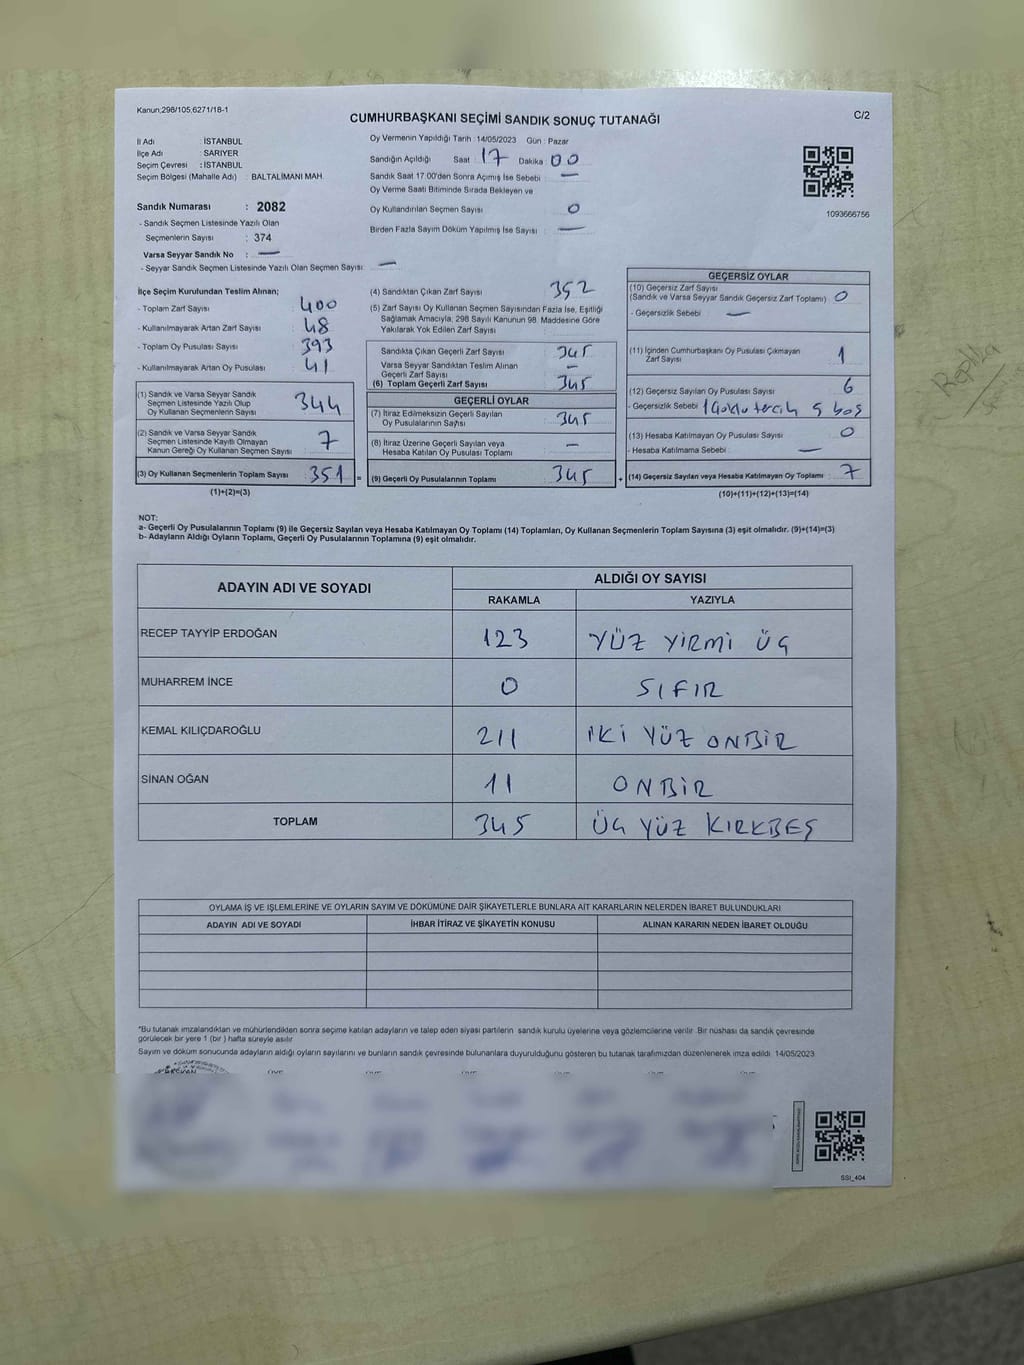 Kanun;298/105,6271/18-1
CUMHURBAŞKANI SEÇİMİ SANDIK SONUÇ TUTANAĞI
C/2
İl Adı : İSTANBUL
İlçe Adı : SARIYER
Seçim Çevresi : İSTANBUL
Seçim Bölgesi (Mahalle Adı) : BALTALİMANI MAH.
Oy Vermenin Yapıldığı Tarih : 14/05/2023 Gün : Pazar
Sandığın Açıldığı Saat : 17 Dakika : 00
Sandık Saat 17.00'den Sonra Açımış İse Sebebi : —
Oy Verme Saati Bitiminde Sırada Bekleyen ve
Oy Kullandırılan Seçmen Sayısı : 0
Birden Fazla Sayım Döküm Yapılmış İse Sayısı : —
1093666756
Sandık Numarası : 2082
- Sandık Seçmen Listesinde Yazılı Olan
Seçmenlerin Sayısı : 374
Varsa Seyyar Sandık No : —
- Seyyar Sandık Seçmen Listesinde Yazılı Olan Seçmen Sayısı: —
İlçe Seçim Kurulundan Teslim Alınan;
- Toplam Zarf Sayısı : 400
- Kullanılmayarak Artan Zarf Sayısı : 48
- Toplam Oy Pusulası Sayısı : 393
- Kullanılmayarak Artan Oy Pusulası : 41
(1) Sandık ve Varsa Seyyar Sandık
Seçmen Listesinde Yazılı Olup
Oy Kullanan Seçmenlerin Sayısı : 344
(2) Sandık ve Varsa Seyyar Sandık
Seçmen Listesinde Kayıtlı Olmayan
Kanun Gereği Oy Kullanan Seçmen Sayısı : 7
(3) Oy Kullanan Seçmenlerin Toplam Sayısı : 351 =
(1)+(2)=(3)
(4) Sandıktan Çıkan Zarf Sayısı : 352
(5) Zarf Sayısı Oy Kullanan Seçmen Sayısından Fazla İse, Eşitliği
Sağlamak Amacıyla, 298 Sayılı Kanunun 98. Maddesine Göre
Yakılarak Yok Edilen Zarf Sayısı :
Sandıkta Çıkan Geçerli Zarf Sayısı : 345
Varsa Seyyar Sandıktan Teslim Alınan
Geçerli Zarf Sayısı : —
(6) Toplam Geçerli Zarf Sayısı : 345
GEÇERLİ OYLAR
(7) İtiraz Edilmeksizin Geçerli Sayılan
Oy Pusulalarının Sayısı : 345
(8) İtiraz Üzerine Geçerli Sayılan veya
Hesaba Katılan Oy Pusulası Toplamı : —
(9) Geçerli Oy Pusulalarının Toplamı : 345 +
GEÇERSİZ OYLAR
(10) Geçersiz Zarf Sayısı
(Sandık ve Varsa Seyyar Sandık Geçersiz Zarf Toplamı) : 0
- Geçersizlik Sebebi : —
(11) İçinden Cumhurbaşkanı Oy Pusulası Çıkmayan
Zarf Sayısı : 1
(12) Geçersiz Sayılan Oy Pusulası Sayısı : 6
- Geçersizlik Sebebi : 1 Çoklu tercih 5 boş
(13) Hesaba Katılmayan Oy Pusulası Sayısı : 0
- Hesaba Katılmama Sebebi : —
(14) Geçersiz Sayılan veya Hesaba Katılmayan Oy Toplamı : 7
(10)+(11)+(12)+(13)=(14)
NOT:
a- Geçerli Oy Pusulalarının Toplamı (9) ile Geçersiz Sayılan veya Hesaba Katılmayan Oy Toplamı (14) Toplamları, Oy Kullanan Seçmenlerin Toplam Sayısına (3) eşit olmalıdır. (9)+(14)=(3)
b- Adayların Aldığı Oyların Toplamı, Geçerli Oy Pusulalarının Toplamına (9) eşit olmalıdır.
ADAYIN ADI VE SOYADI
ALDIĞI OY SAYISI
RAKAMLA YAZIYLA
RECEP TAYYİP ERDOĞAN 123 YÜZ YİRMİ ÜÇ
MUHARREM İNCE 0 SIFIR
KEMAL KILIÇDAROĞLU 211 İKİ YÜZ ONBİR
SİNAN OĞAN 11 ONBİR
TOPLAM 345 ÜÇ YÜZ KIRKBEŞ
OYLAMA İŞ VE İŞLEMLERİNE VE OYLARIN SAYIM VE DÖKÜMÜNE DAİR ŞİKAYETLERLE BUNLARA AİT KARARLARIN NELERDEN İBARET BULUNDUKLARI
ADAYIN ADI VE SOYADI İHBAR İTİRAZ VE ŞİKAYETİN KONUSU ALINAN KARARIN NEDEN İBARET OLDUĞU
*Bu tutanak imzalandıktan ve mühürlendikten sonra seçime katılan adayların ve talep eden siyasi partilerin sandık kurulu üyelerine veya gözlemcilerine verilir. Bir nüshası da sandık çevresinde
görülecek bir yere 1 (bir) hafta süreyle asılır
Sayım ve döküm sonucunda adayların aldığı oyların sayılarını ve bunların sandık çevresinde bulunanlara duyurulduğunu gösteren bu tutanak tarafımızdan düzenlenerek imza edildi. 14/05/2023
SSI_404